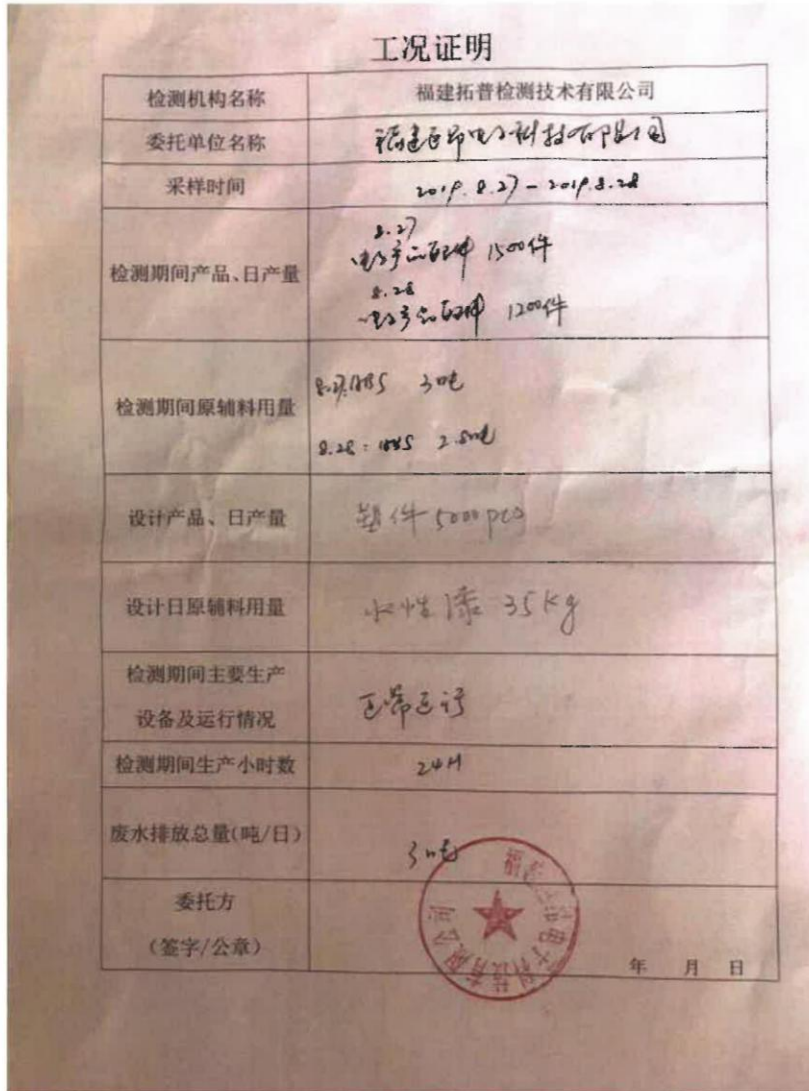 工况证明
检测机构名称 福建拓普检测技术有限公司
委托单位名称 福建 电子科技有限公司
采样时间 2019.8.27-2019.8.28
8.27
检测期间产品、日产量 电子产品配件 1500件
8.28
电子产品配件 1200件
检测期间原辅料用量 8.27:ABS 3吨
8.28:ABS 2.5吨
设计产品、日产量 塑件5000pcs
设计日原辅料用量 水性漆 35kg
检测期间主要生产
设备及运行情况 正常运行
检测期间生产小时数 24H
废水排放总量(吨/日)
委托方
(签字/公章)
年 月 日
电子科技有限公司